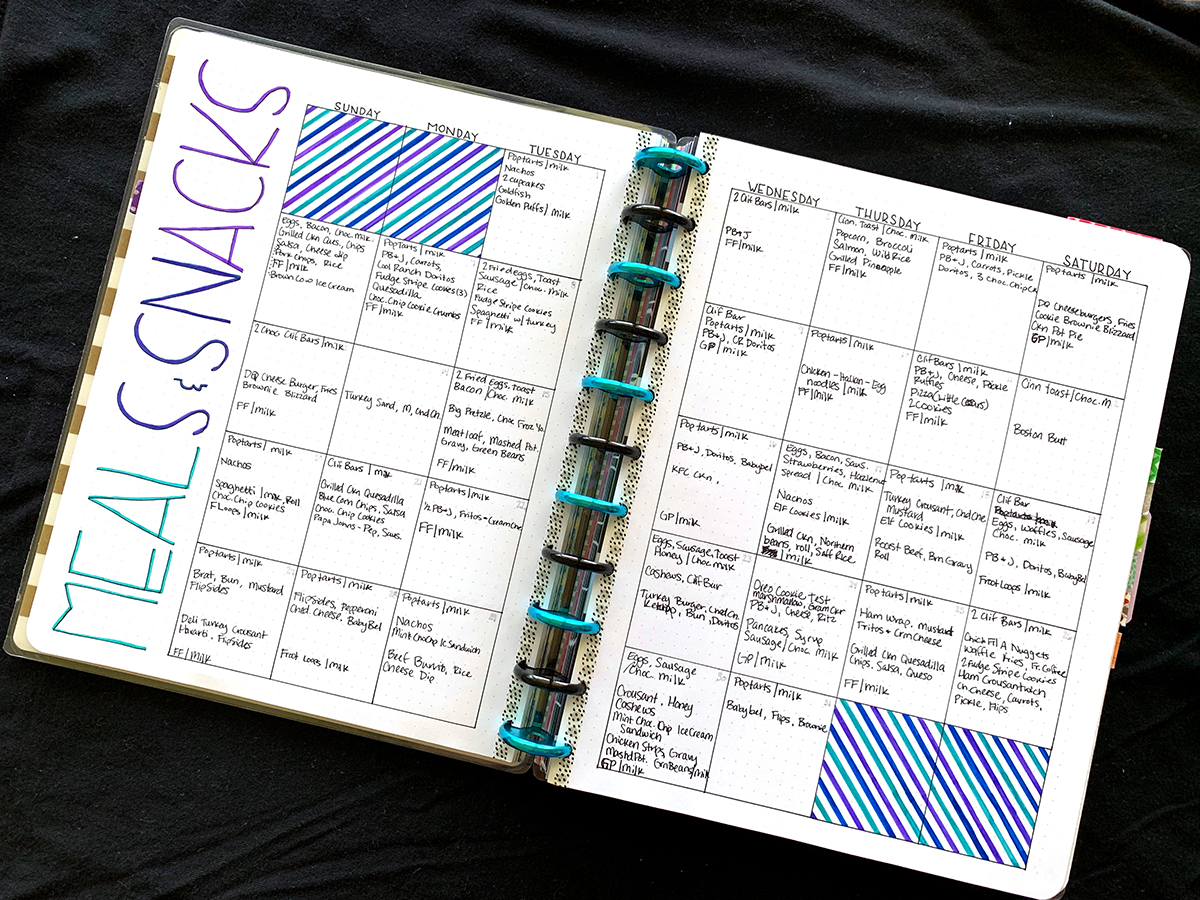 MEALS & SNACKS
SUNDAY
MONDAY
TUESDAY
Poptarts / milk
Nachos
2 cupcakes
Goldfish
Golden Puffs / milk
Eggs, Bacon, Choc. milk
Grilled Ckn Ques, Chips
Salsa, Cheese dip
Pork Chops, Rice
FF / milk
Brown Cow Ice Cream
Poptarts / milk
PB+J, Carrots,
Cool Ranch Doritos
Fudge Stripe Cookies (3)
Quesadilla
Choc. Chip Cookie Crumbs
FF / milk
2 Fried eggs, Toast
Sausage / Choc. milk
Rice
Fudge Stripe Cookies
Spaghetti w/ turkey
FF / milk
2 Choc Clif Bars / milk
DQ Cheese Burger, Fries
Brownie Blizzard
FF / milk
Turkey Sand, M, Chd Ch.
2 Fried Eggs, toast
Bacon / Choc milk
Big Pretzle, Choc Froz Yo.
Meatloaf, Mashed Pot.
Gravy, Green Beans
FF / milk
Poptarts / milk
Nachos
Spaghetti / milk, Roll
Choc. Chip Cookies
F Loops / milk
Clif Bars / milk
Grilled Ckn Quesadilla
Blue Corn Chips, Salsa
Choc. Chip Cookies
Papa Johns - Pep, Saus.
Poptarts / milk
½ PB+J, Fritos + Cram Che
FF / milk
Poptarts / milk
Brat, Bun, Mustard
Flipsides
Deli Turkey Crousant
Havarti, Flipsides
FF / milk
Poptarts / milk
Flipsides, Pepperoni
Ched. Cheese, BabyBel
Froot Loops / milk
Poptarts / milk
Nachos
Mint ChoChip Ic Sandwich
Beef Burrito, Rice
Cheese Dip
WEDNESDAY
THURSDAY
FRIDAY
SATURDAY
2 Clif Bars / milk
PB+J
FF / milk
Cinn. Toast / Choc. Milk
Popcorn, Broccoli
Salmon, Wild Rice
Grilled Pineapple
FF / milk
Poptarts / milk
PB+J, Carrots, Pickle
Doritos, 3 Choc Chip Ck
Poptarts / milk
DQ Cheeseburgers, Fries
Cookie Brownie Blizzard
Ckn Pot Pie
GP / milk
Clif Bar
Poptarts / milk
PB+J, CR Doritos
GP / milk
Poptarts / milk
Chicken - Italian - Egg
noodles / milk
FF / milk
Clif Bars / milk
PB+J, Cheese, Pickle
Ruffles
Pizza (Little Csars)
2 Cookies
FF / milk
Cinn Toast / Choc. M
Boston Butt
Poptarts / milk
PB+J, Doritos, Babybel
KFC Ckn,
GP / milk
Eggs, Bacon, Saus.
Strawberries, Hazelnut
Spread / Choc Milk
Nachos
Elf Cookies / milk
Grilled Ckn, Northern
beans, roll, Saff Rice
/ milk
Poptarts / milk
Turkey Crousant, Chd Che
Mustard
Elf Cookies / milk
Roast Beef, Brn Gravy
Roll
Clif Bar
Eggs, Waffles, Sausage
Choc. milk
PB+J, Doritos, BabyBel
Froot Loops / milk
Eggs, Sausage, toast
Honey / Choc milk
Cashews, Clif Bar
Turkey Burger, Chd Ch.
Ketchup, Bun, Doritos
Oreo Cookie, Test
marshmallow, Gram Ckr
PB+J, Cheese, Ritz
Pancakes, Syrup
Sausage / Choc. Milk
GP / milk
Poptarts / milk
Ham Wrap, Mustard
Fritos + Crm Cheese
Grilled Ckn Quesadilla
Chips, Salsa, Queso
FF / milk
2 Clif Bars / milk
Chick Fil A Nuggets
Waffle fries, Fr. Coffee
2 Fudge Stripe Cookies
Ham Crousantwich
Ch. Cheese, Carrots,
Pickle, Flips
Eggs, Sausage
/ Choc. milk
Crousant, Honey
Cashews
Mint Choc. Chip Ice Cream
Sandwich
Chicken Strips, Gravy
Mashd Pot. Grn Beans / milk
GP / milk
Poptarts / milk
Babybel, Flips, Brownie